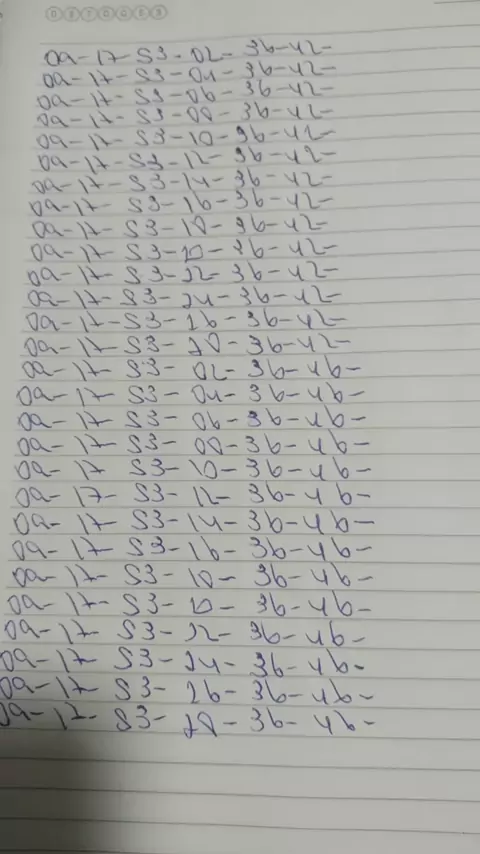 D S T Q Q S S
09-17-53-02-36-42-
09-17-53-04-36-42-
09-17-53-06-36-42-
09-17-53-08-36-42-
09-17-53-10-36-42-
09-17-53-12-36-42-
09-17-53-14-36-42-
09-17-53-16-36-42-
09-17-53-18-36-42-
09-17-53-20-36-42-
09-17-53-22-36-42-
09-17-53-24-36-42-
09-17-53-26-36-42-
09-17-53-28-36-42-
09-17-53-02-36-46-
09-17-53-04-36-46-
09-17-53-06-36-46-
09-17-53-08-36-46-
09-17-53-10-36-46-
09-17-53-12-36-46-
09-17-53-14-36-46-
09-17-53-16-36-46-
09-17-53-18-36-46-
09-17-53-20-36-46-
09-17-53-22-36-46-
09-17-53-24-36-46-
09-17-53-26-36-46-
09-17-53-28-36-46-